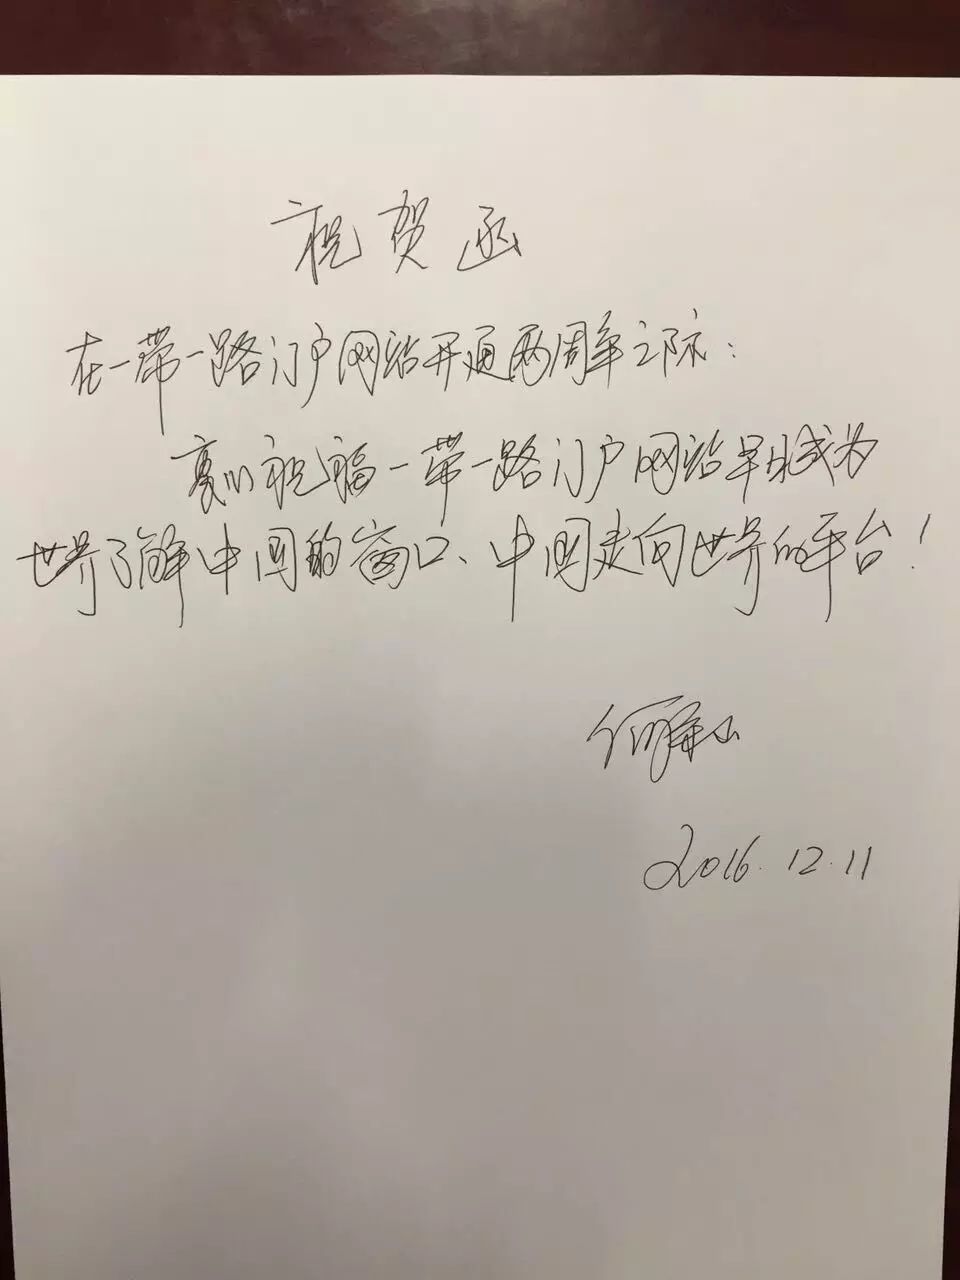 祝贺函
在一带一路门户网站开通两周年之际：
衷心祝福一带一路门户网站早日成为
世界了解中国的窗口、中国走向世界的平台！
2016.12.11